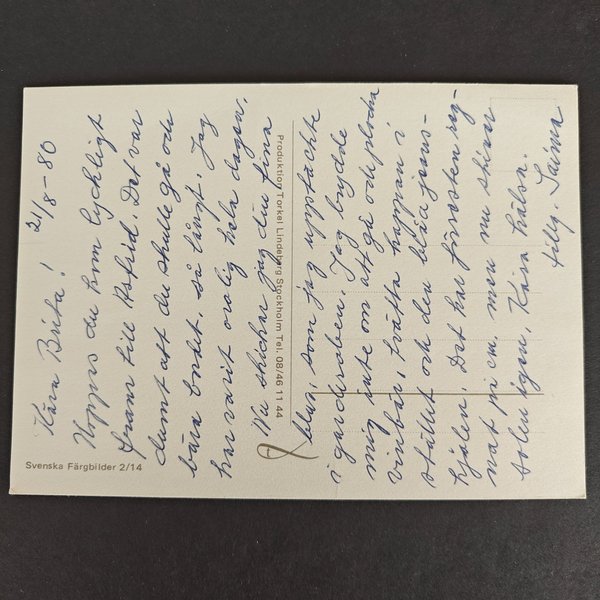 21/8-80
Kära Birta!
Hoppas du kom lyckligt
fram till Astrid. Det var
dumt att du skulle gå och
bära bordet, så långt. Jag
har varit orolig hela dagen.
Nu skickar jag din fina
blus, som jag upptäckte
i garderoben. Jag brydde
mig inte om att gå och plocka
vinbär, tvätta kappan i
stället och den blåa
kjolen. Det har förresten reg-
nat på em, men nu skiner
solen igen. Kära hälsn.
tillg. Saima
Produktion Torkel Lindeberg Stockholm Tel. 08/46 11 44
Svenska Färgbilder 2/14